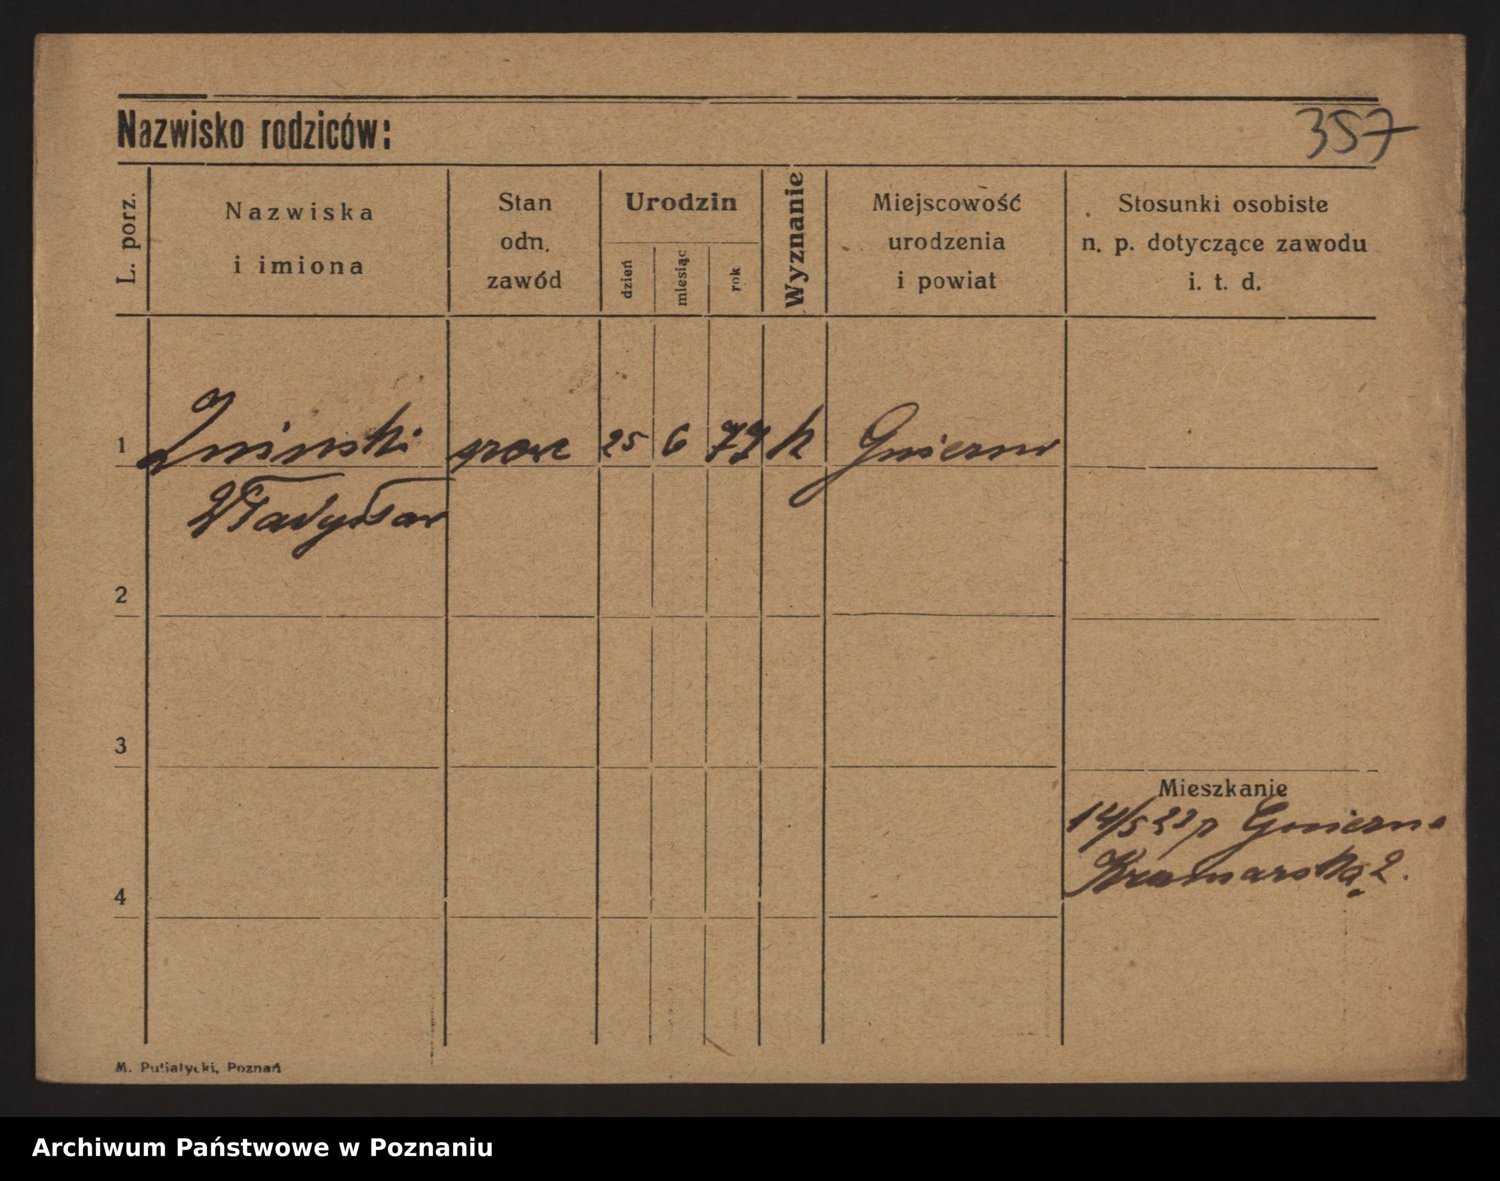 Nazwisko rodziców:
357
L. porz.
Nazwiska
i imiona
Stan
odn.
zawód
Urodzin
dzień
miesiąc
rok
Wyznanie
Miejscowość
urodzenia
i powiat
Stosunki osobiste
n. p. dotyczące zawodu
i. t. d.
1
Zniński
25
6
77
k
Gniezno
Władysław
2
3
Mieszkanie
14/5 23 Gniezno
Kramarska 2.
4
M. Putiatycki, Poznań
Archiwum Państwowe w Poznaniu